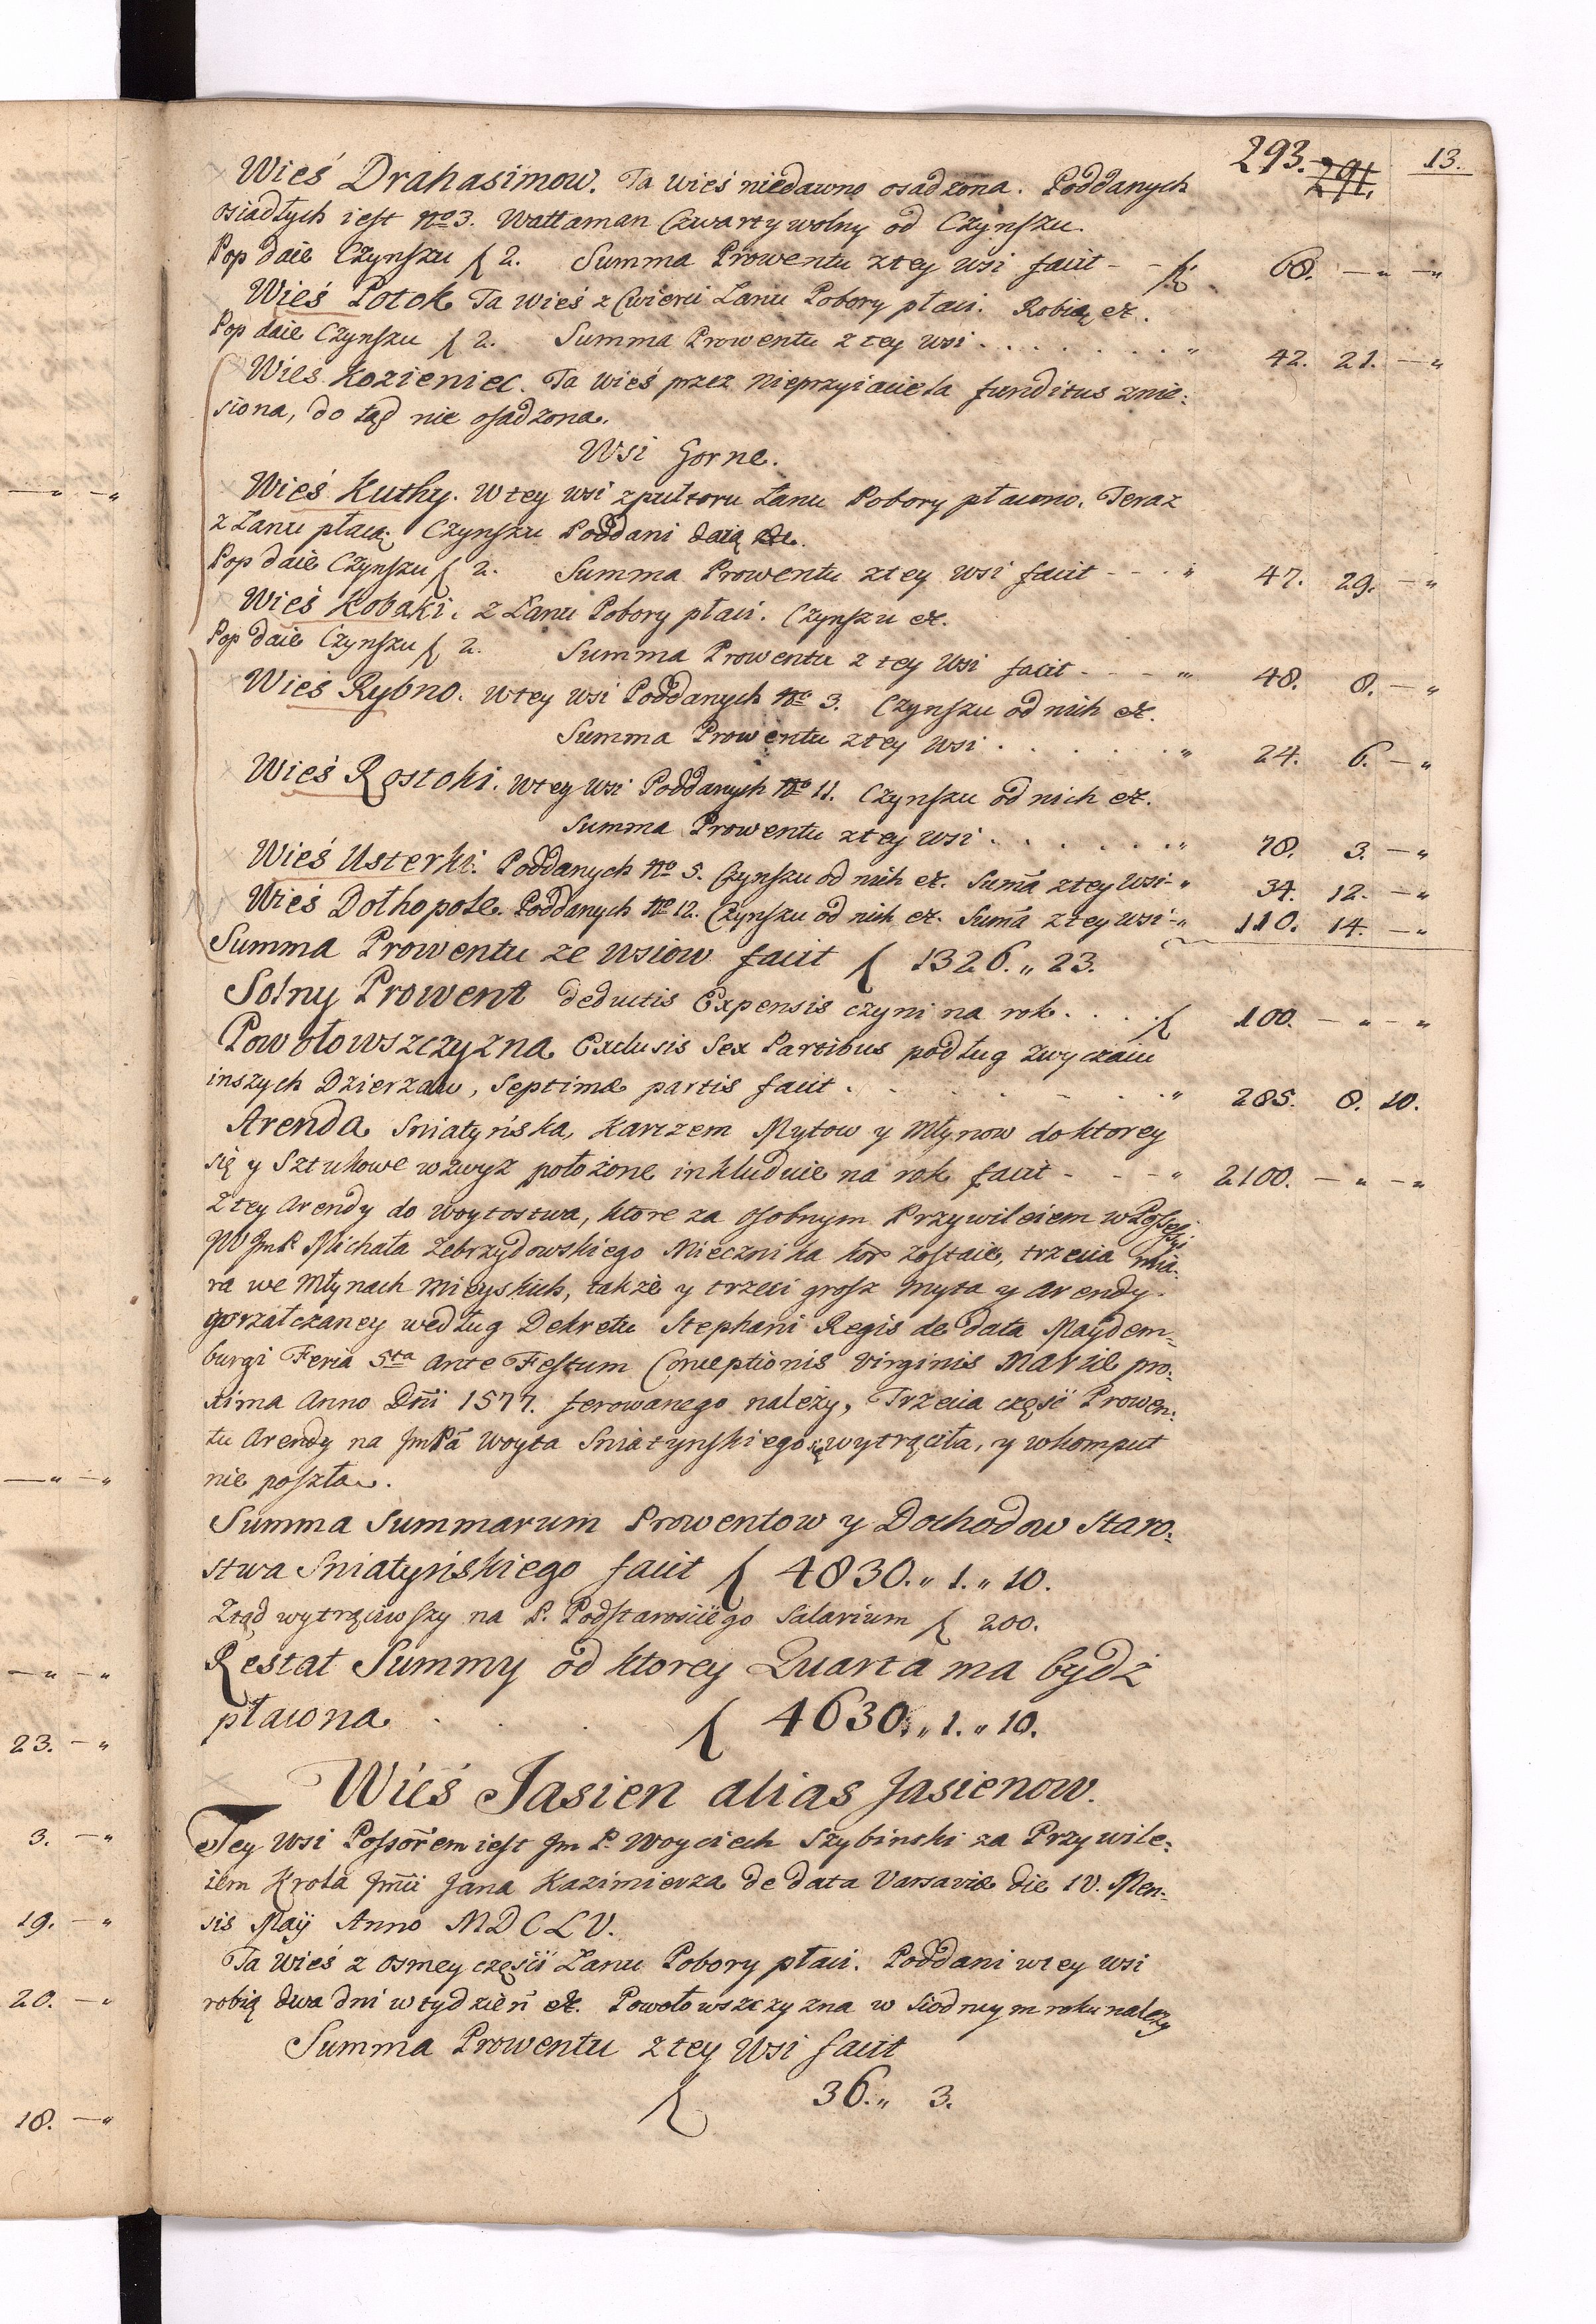 293. 291. 13.
Wieś Drahasimow. Ta wieś niedawno osadzona. Poddanych
osiadłych iest No 3. Wattaman Czwarty wolny od Czynszu.
Pop daie Czynszu f 2. Summa Prowentu z tey wsi facit - - f. 68. — „ —„
Wieś Potok Ta wieś z Cwierci Łanu Pobory płaci. Robią etc.
Pop daie Czynszu f 2. Summa Prowentu z tey wsi . . . . . . . „ 42. 21. —„
Wies Kozieniec. Ta wieś przez nieprzyiaciela funditus znie:
siona, do tąd nie osadzona.
Wsi Gorne.
Wieś Kuthy. W tey wsi z pułtoru Łanu Pobory płacono. Teraz
z Łanu płacą. Czynszu Poddani daią etc.
Pop daie Czynszu f 2. Summa Prowentu z tey wsi facit - - - „ 47. 29. —„
Wieś Kobaki. z Łanu Pobory płaci. Czynszu etc.
Pop daie Czynszu f 2. Summa Prowentu z tey Wsi facit - - - „ 48. 8. —„
Wieś Rybno. w tey wsi Poddanych No 3. Czynszu od nich etc.
Summa Prowentu z tey wsi . . . . . . „ 24. 6. —„
Wieś Rostoki. w tey wsi Poddanych No 11. Czynszu od nich etc.
Summa Prowentu z tey wsi . . . . . . „ 78. 3. —„
Wieś Usterki. Poddanych No 5. Czynszu od nich etc. Suma z tey wsi - „ 34. 12. —„
Wieś Dołhopole. Poddanych No 12. Czynszu od nich etc. Suma z tey wsi - „ 110. 14. —„
Summa Prowentu ze wsiow facit f 1326. „ 23.
Solny Prowent deductis Expensis czyni na rok . . . . f 100. — „ — „
Powołowszczyzna Exclusis Sex Partibus podług zwyczaiu
inszych Dzierzaw, Septimæ partis facit . . . . . „ 285. 8. 10.
Arenda Sniatyńska, Karczem Mytow y Młynow do ktorey
się y Sztukowe wzwyz położone inkluduie na rok facit - - - „ 2100. — „ — „
Z tey Arendy do woytostwa, ktore za osobnym Przywileiem w Possessyi
JW JmP. Michała Zebrzydowskiego Miecznika Kor zostaie, trzecia mia:
ra we Młynach mieyskich, takze y trzeci grosz myta y arendy
gorzałczaney według Dekretu Stephani Regis de data Maydem-
burgi Feria 5ta ante Festum Conceptionis Virginis Mariæ pro:
xima Anno Dni 1577. ferowanego należy, Trzecia część Prowen:
tu Arendy na JmPa Woyta Sniatynskiego się wytrąciła, y w komput
nie poszła.
Summa Summarum Prowentow y Dochodow Staro:
stwa Sniatyńskiego facit f 4830. „ 1. „ 10.
Ztąd wytrąciwszy na P. Podstarosciego Salarium f 200.
Restat Summy od ktorey Quarta ma bydź
płacona . . . f 4630. „ 1. „ 10.
Wieś Jasien alias Jasienow.
Tey Wsi Possorem iest Jm P. Woyciech Szybinski za Przywile:
iem Krola Jmci Jana Kazimierza de data Varsaviæ die 10. Men-
sis Maij Anno MDCLV.
Ta Wieś z osmey części Łanu Pobory płaci. Poddani w tey wsi
robią dwa dni w tydzień etc. Powołowszczyzna w siodmym roku należy
Summa Prowentu z tey Wsi facit
f 36. „ 3.
—„ —„
—„ —„
—„ —„
23. —„
3. —„
19. —„
20. —„
18. —„